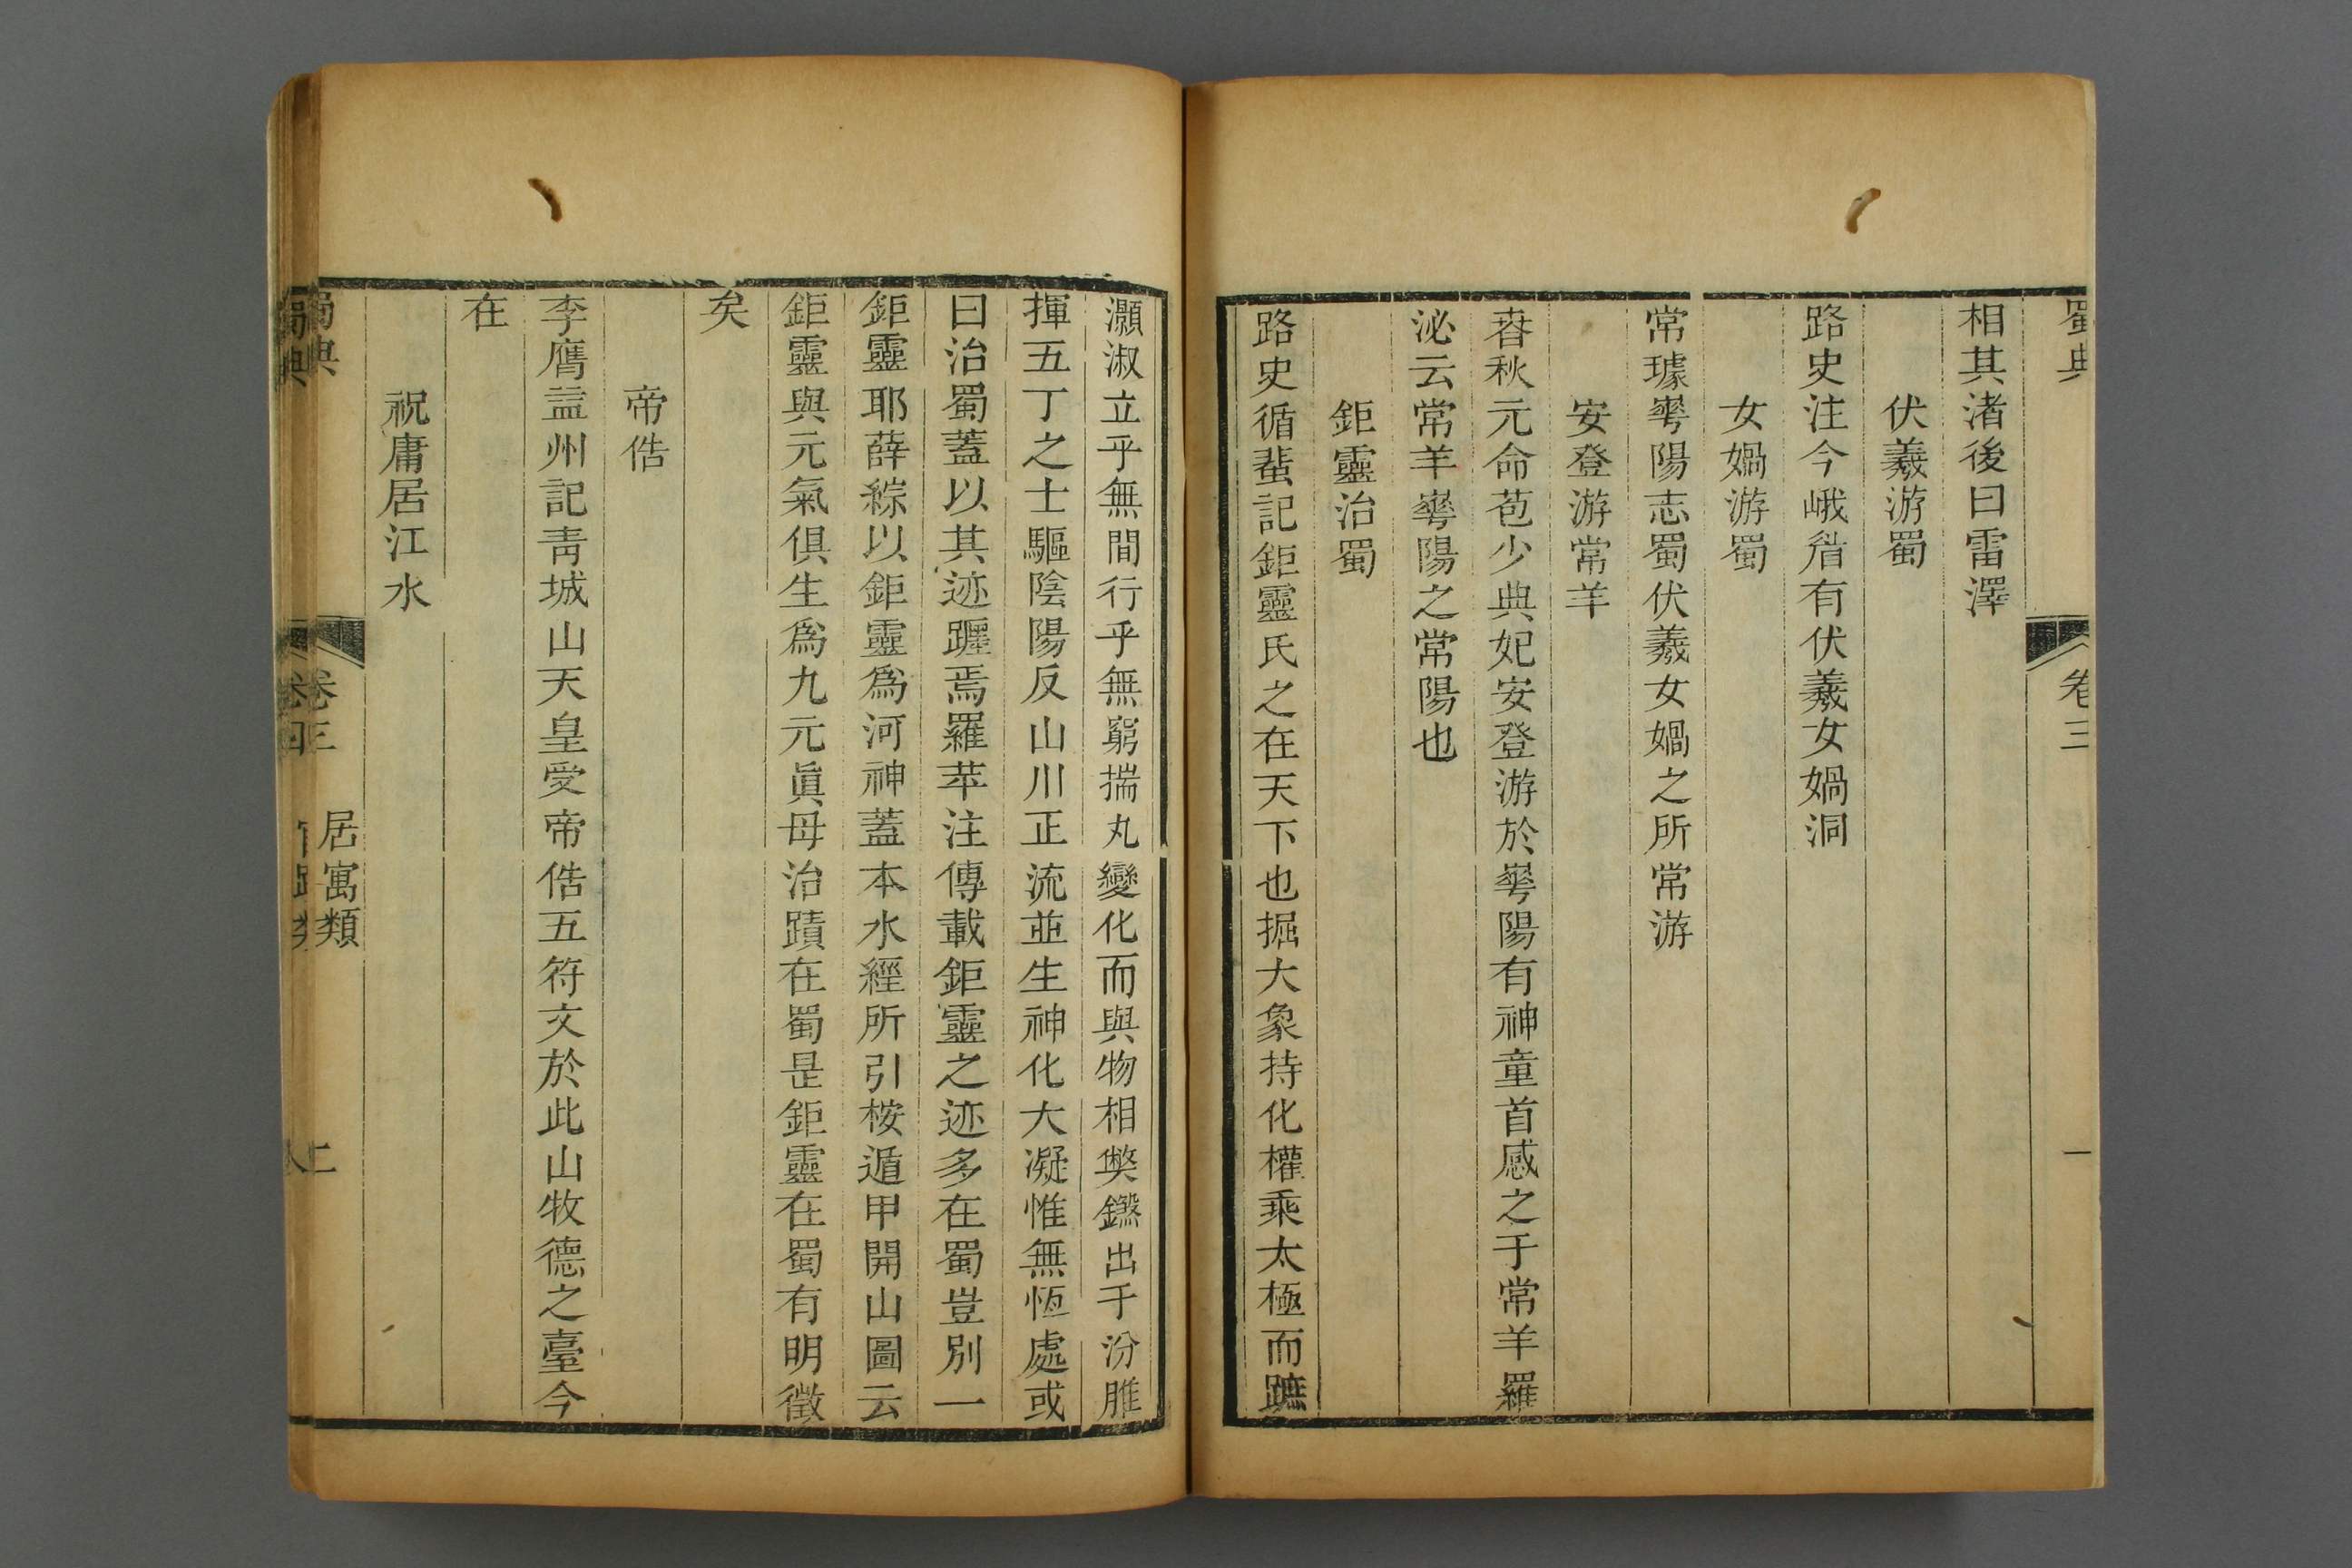 蜀典
卷三
一
相其渚後曰雷澤
伏羲游蜀
路史注今峨眉有伏羲女媧洞
女媧游蜀
常璩華陽志蜀伏羲女媧之所常游
安登游常羊
春秋元命苞少典妃安登游於華陽有神童首感之于常羊羅
泌云常羊華陽之常陽也
鉅靈治蜀
路史循蜚記鉅靈氏之在天下也掘大象持化權乘太極而蹠
灝淑立乎無間行乎無窮揣丸變化而與物相弊鑠出于汾脽
揮五丁之士驅陰陽反山川正流並生神化大凝惟無恆處或
曰治蜀蓋以其迹躔焉羅苹注傳載鉅靈之迹多在蜀豈別一
鉅靈耶薛綜以鉅靈爲河神蓋本水經所引桉遁甲開山圖云
鉅靈與元氣俱生爲九元眞母治蹟在蜀是鉅靈在蜀有明徵
矣
帝俈
李膺益州記青城山天皇受帝俈五符文於此山牧德之臺今
在
祝庸居江水
蜀典
卷三
居寓類
二
蜀典
卷四